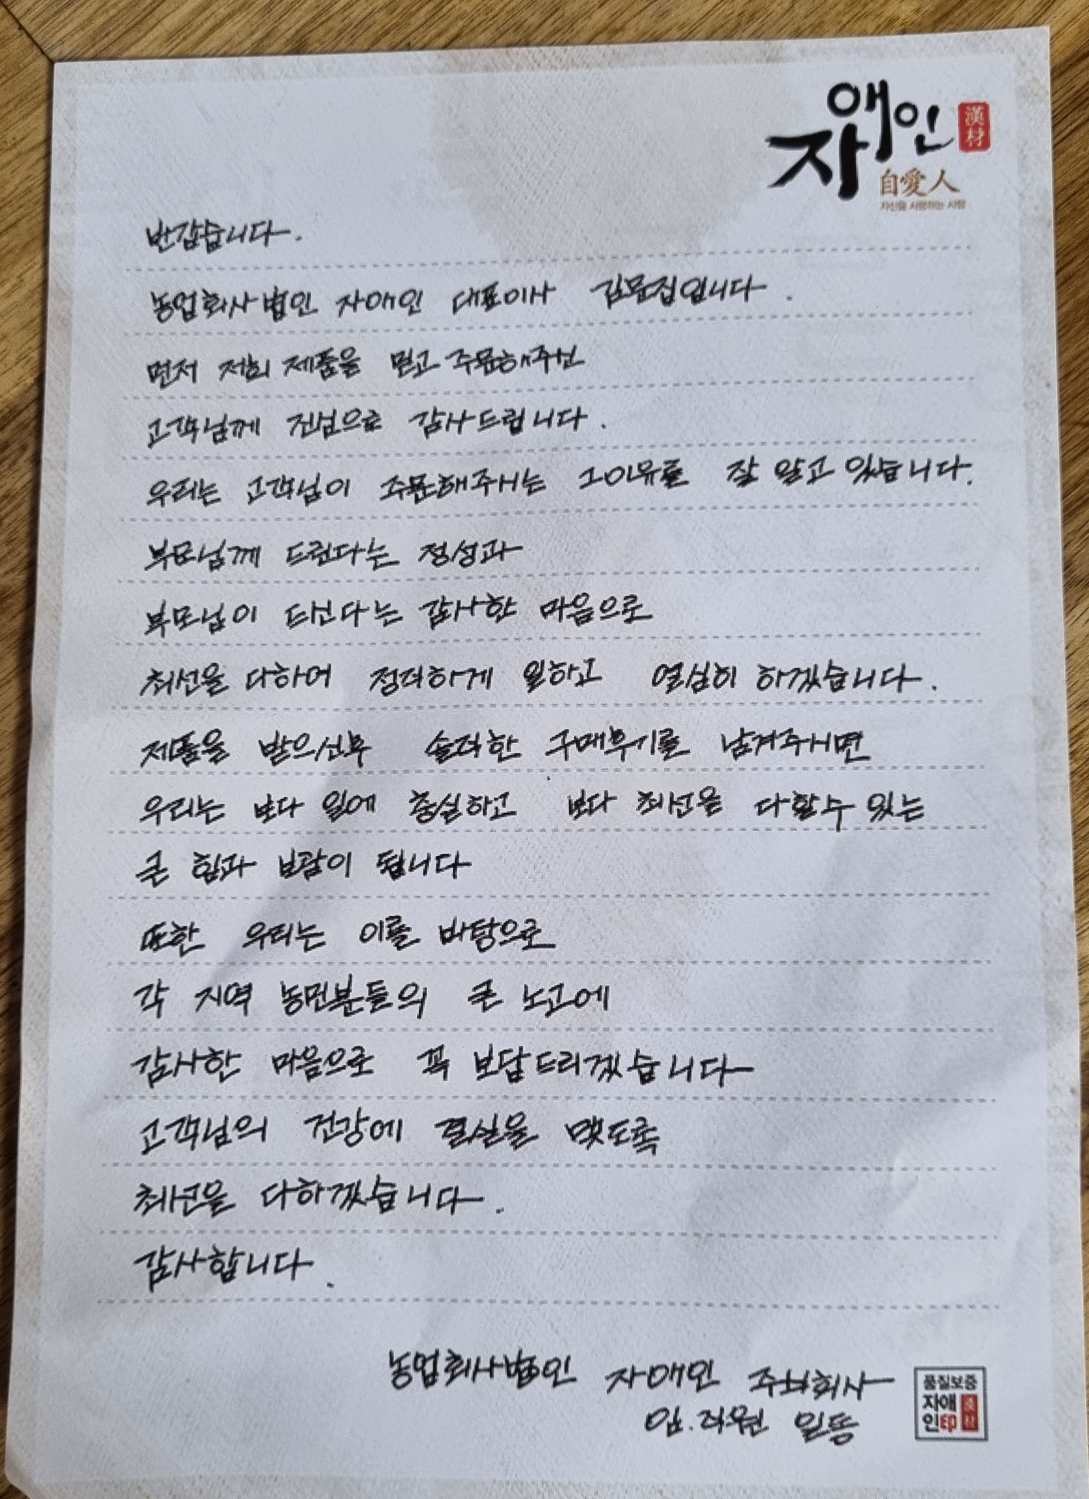 자애인 漢材
自愛人
자신을 사랑하는 사람
반갑습니다.
농업회사법인 자애인 대표이사 김문집입니다.
먼저 저희 제품을 믿고 주문해주신
고객님께 진심으로 감사드립니다.
우리는 고객님이 주문해주시는 그이유를 잘 알고 있습니다.
부모님께 드린다는 정성과
부모님이 드신다는 감사한 마음으로
최선을 다하여 정직하게 일하고 열심히 하겠습니다.
제품을 받으신후 솔직한 구매후기를 남겨주시면
우리는 보다 일에 충실하고 보다 최선을 다할수 있는
큰 힘과 보람이 됩니다
또한 우리는 이를 바탕으로
각 지역 농민분들의 큰 노고에
감사한 마음으로 꼭 보답드리겠습니다
고객님의 건강에 결실을 맺도록
최선을 다하겠습니다.
감사합니다.
농업회사법인 자애인 주식회사
임.직원 일동
품질보증
자애
인印
漢材